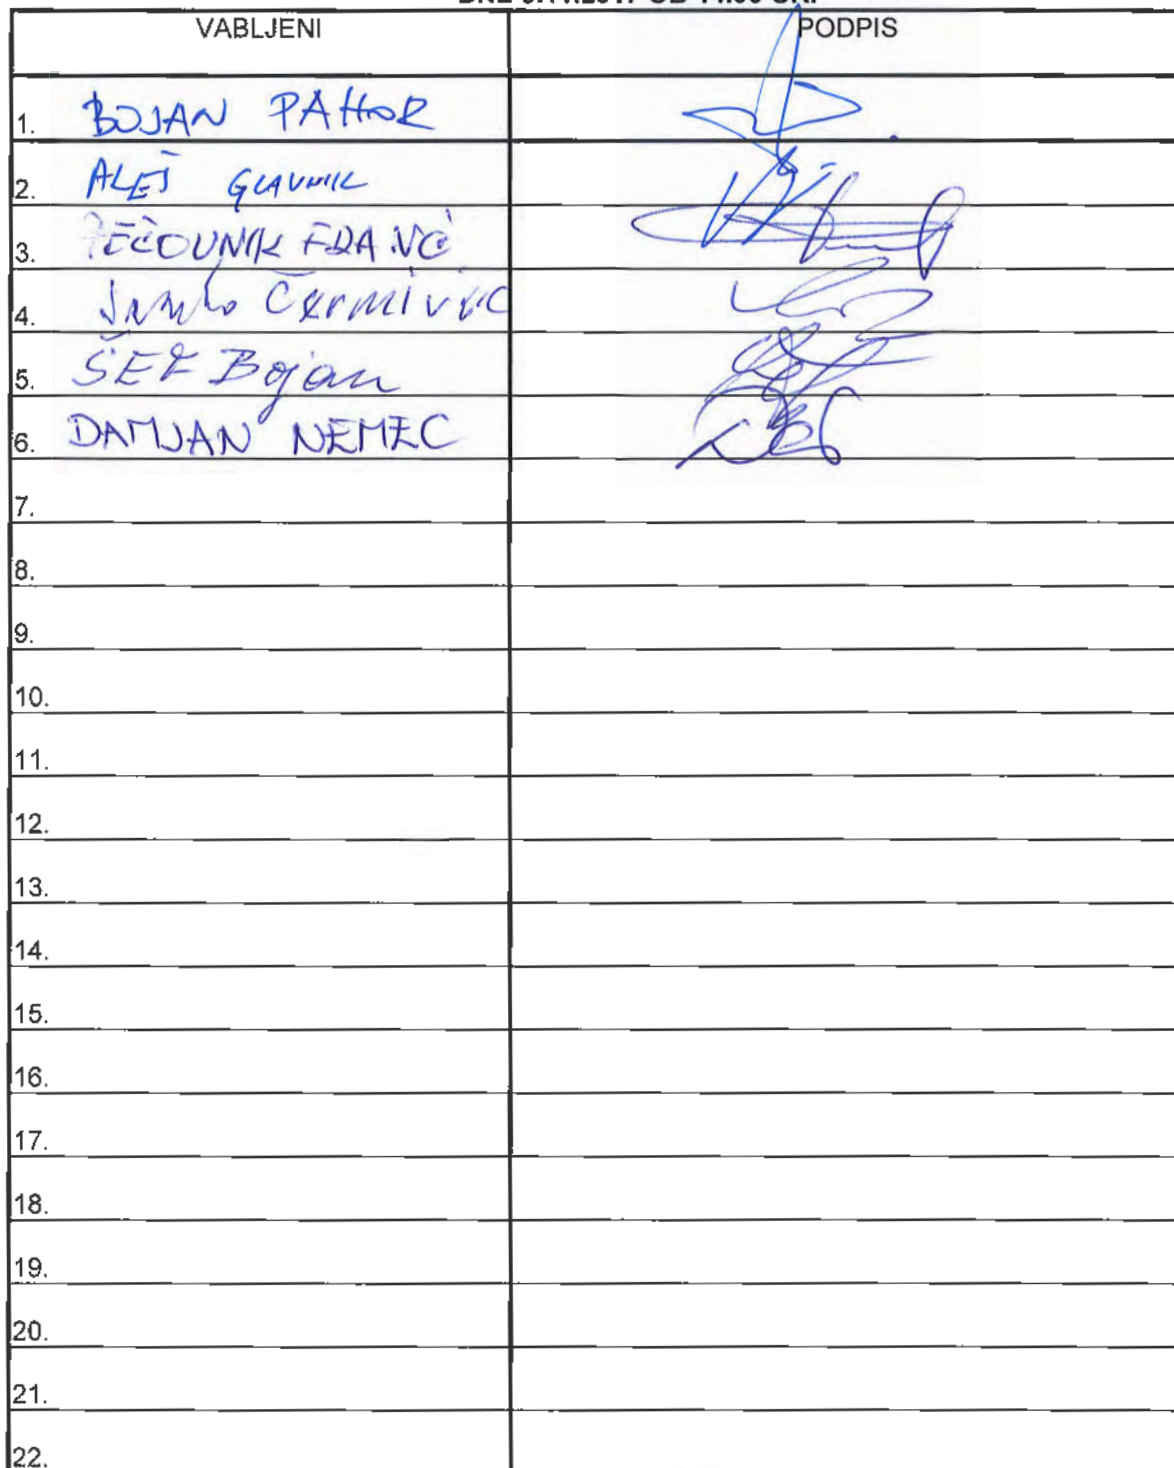 VABLJENI PODPIS
1. BOJAN PAHOR
2. ALEŠ GLAVNIK
3. PEČOVNIK FRANC
4. Janko
5. ŠEF Bojan
6. DAMJAN NEMEC
7.
8.
9.
10.
11.
12.
13.
14.
15.
16.
17.
18.
19.
20.
21.
22.